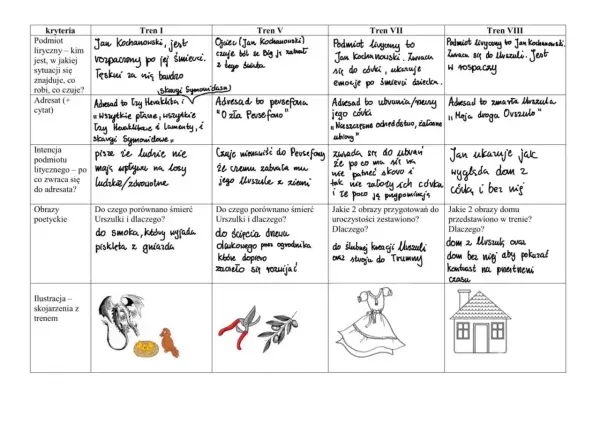 kryteria
Tren I
Tren V
Tren VII
Tren VIII
Podmiot
liryczny – kim
jest, w jakiej
sytuacji się
znajduje, co
robi, co czuje?
Jan Kochanowski, jest
rozpaczony po jej śmierci.
Tęskni za nią bardzo
Ojciec (Jan Kochanowski)
czuje ból że Bóg ją zabrał
z tego świata
Podmiot liryczny to
Jan Kochanowski. Zwraca
się do córki, ukazuje
emocje po śmierci dziecka.
Podmiot liryczny to Jan Kochanowski.
Zwraca się do Urszulki. Jest
w rozpaczy
Adresat (+
cytat)
(skargi Symonidesa)
Adresad to łzy Heraklita i
"Wszytkie płacze, wszytkie
łzy Heraklitowe i lamenty, i
skargi Symonidowe"
Adresad to persefona
"O zła Persefono"
Adresad to ubrania/rzeczy
jego córki
"Nieszczęsne ochędóstwo, żałosne
ubiory"
Adresad to zmarła Urszula
"Moja droga Orszulo"
Intencja
podmiotu
lirycznego – po
co zwraca się
do adresata?
pisze że ludzie nie
mają wpływu na losy
ludzkie/zdrowotne
Czuje nienawiść do Persefony
że czemu zabrała mu
jego Urszule z ziemi
zwraca się do ubrań
że po co ma się na
nie patrzeć skoro i
tak nie założy ich córka
i że poco ją przypominają
Jan ukazuje jak
wygląda dom z
córką i bez niej
Obrazy
poetyckie
Do czego porównano śmierć
Urszulki i dlaczego?
do smoka, który wyjada
pisklęta z gniazda
Do czego porównano śmierć
Urszulki i dlaczego?
do ścięcia drzewa
oliwkowego przez ogrodnika
które dopiero
zaczeło się rozwijać
Jakie 2 obrazy przygotowań do
uroczystości zestawiono?
Dlaczego?
do ślubnej kreacji Urszuli
oraz stroju do Trumny
Jakie 2 obrazy domu
przedstawiono w trenie?
Dlaczego?
dom z Urszulą oraz
dom bez niej aby pokazać
kontrast na przestrzeni
czasu
Ilustracja –
skojarzenia z
trenem